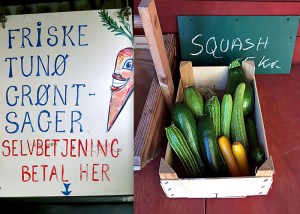 FRISKE
TUNØ
GRØNT-
SAGER
SELVBETJENING
BETAL HER
SQUASH
Kr.